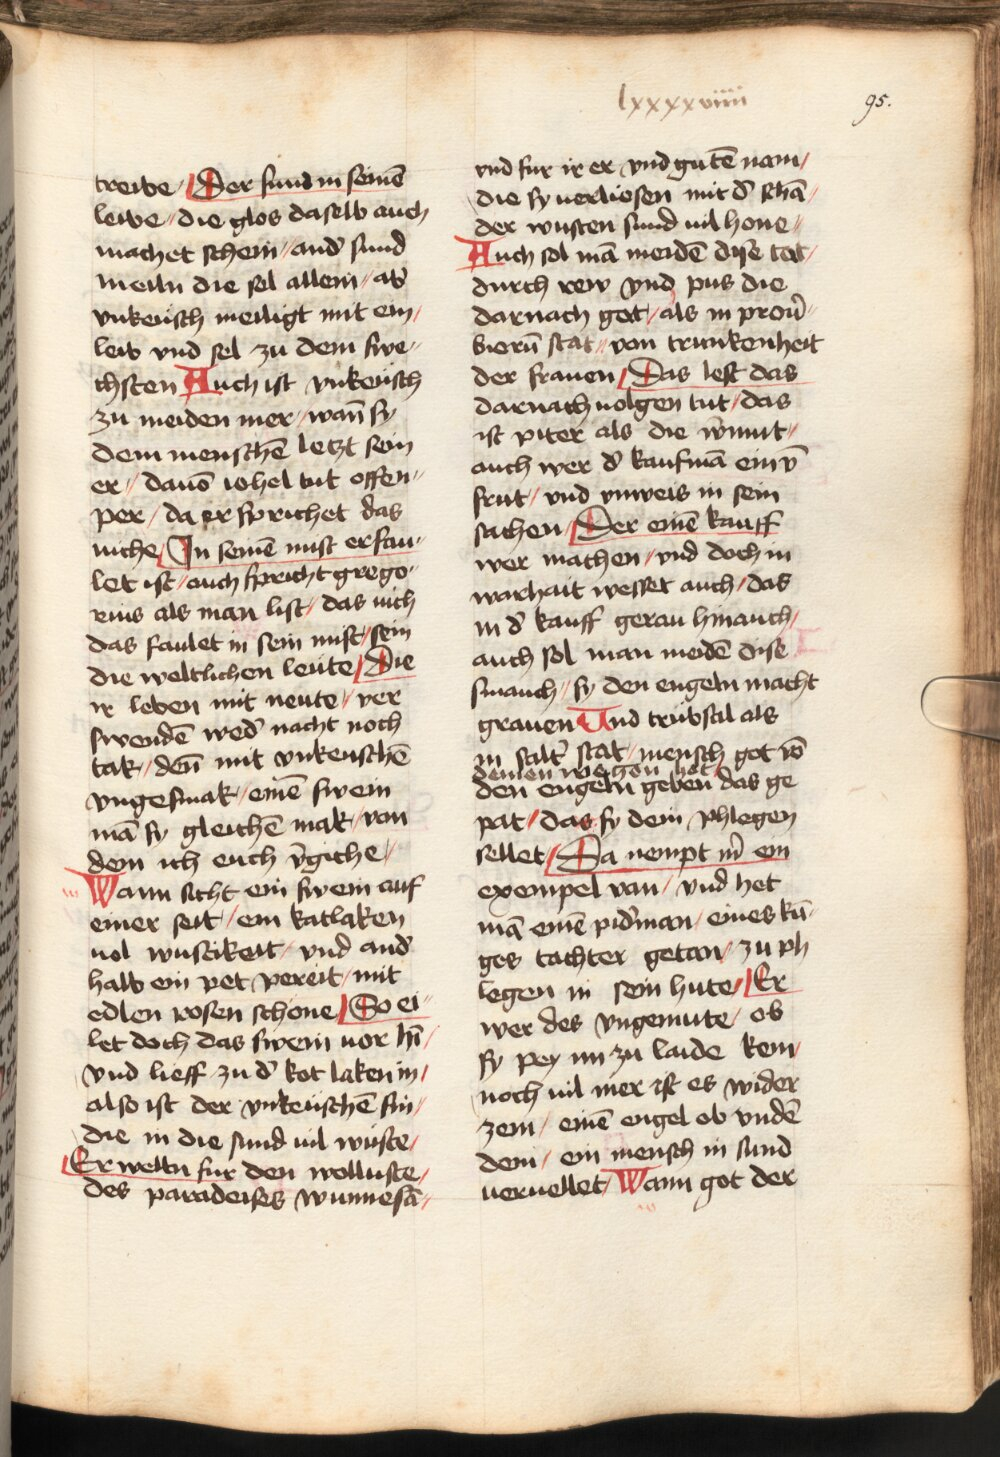 lxxxxviiii
95.
treibe / Der sund in seinē
leibe / die glos daselb auch
machet schein / and̄ sund
meiln die sel allein / ab̄
vnkeusch meiligt mit ein /
leib vnd sel zu dem swe-
chsten Auch ist vnkeusch
zu meiden mer / wañ sy
dem menschē letzt sein
er / dauō iohel tut offen-
per / da er sprichet das
viche / In seinē mist erfau-
let ist / auch spricht grego-
rius als man list / das vich
das faulet in sein mist / sein
die weltlichen leute / Die
ir leben mit neute / ver
swendē wed̄ nacht noch
tak / deñ mit vnkeuschē
vngesmak / einē swein
mā sy gleichē mak / von
dem ich euch v̄giche /
Wann sicht ein swein auf
einer seit / ein katlaken
vol wustikeit / vnd and̄
halb ein pet pereit / mit
edlen rosen schone / So ei-
let doch das swein vor hī /
vnd lieff zu d̄ kot laken in /
also ist der vnkeuschē sin /
die in die sund vil wuste /
Er welln fur den wolluste /
des paradeises wunnesā /
vnd fur ir er vnd gutē nam /
die sy verliosen mit d̄ schā /
der wusten sund vil hone /
Auch sol mā meidē dise tot /
durch rew vnd pus die
darnach got / als in prou̅ /
bierū stat / von trunkenheit
der frauen / Das lest das
darnach volgen tut / das
ist piter als die w̄mut /
auch wer d̄ kaufmā ein v̄
frut / vnd vnweis in sein
sachen / Der einē kauff
wer machen / vnd doch in
warhait wesset auch / das
in d̄ kauff gerau hinauch /
auch sol man meidē dise
smauch / sy den engeln macht
grauen Vnd trubsal als
in salt̄ stat / mensch got vō
deinen wegen het /
den engeln geben das ge
pat / das sy dein phlegen
sellet / Da nempt m̄ ein
exempel van / vnd het
mā einē pid̄man / eines kū-
ges tachter getan / zu ph
legen in sein hute / Er
wer des vngemute / ob
sy pey im zu laide kem /
noch vil mer ist es wider
zem / einē engel ob vndē
dem / ein mensch in sund
veruellet / Wann got der